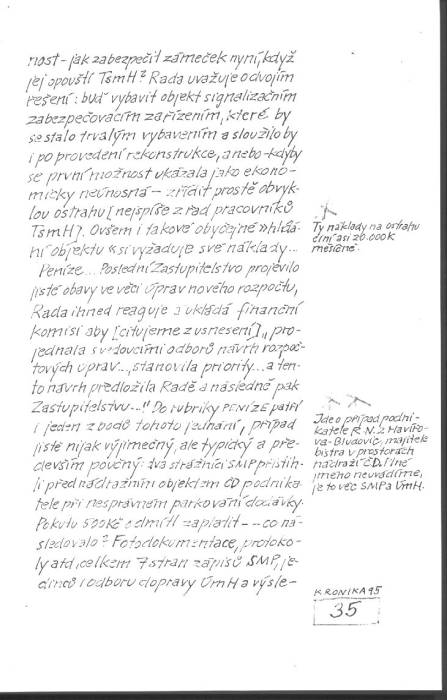 nost - jak zabezpečit zámeček nyní, když
jej opouští TsmH? Rada uvažuje o dvojím
řešení: buď vybavit objekt signalizačním
zabezpečovacím zařízením, které by
se stalo trvalým vybavením a sloužilo by
i po provedení rekonstrukce, a nebo - kdyby
se první možnost ukázala jako ekono-
micky neúnosná - zřídit prostě obvyk-
lou ostrahu [nejspíše z řad pracovníků
TsmH]. Ovšem i takové obyčejné »hlídá-
ní objektu« si vyžaduje své náklady...
Peníze... Poslední Zastupitelstvo projevilo
jisté obavy ve věci úprav nového rozpočtu,
Rada ihned reaguje a ukládá finanční
komisi aby [citujeme z usnesení] „pro-
jednala s vedoucími odborů návrh rozpoč-
tových úprav..., stanovila priority... a ten-
to návrh předložila Radě a následně pak
Zastupitelstvu..." Do rubriky PENÍZE patří
i jeden z bodů tohoto jednání, případ
jistě nijak výjimečný, ale typický a pře-
devším poučný: dva strážníci SMP přistih-
li před nádražním objektem ČD podnika-
tele při nesprávném parkování dodávky.
Pokutu 500Kč odmítl zaplatit --- co ná-
sledovalo? Fotodokumentace, protoko-
ly atd, celkem 7 stran zápisů SMP, je-
dnců i odboru dopravy ÚmH a výsle-
Ty náklady na ostrahu
činí asi 20.000K
měsíčně.
Jde o případ podni-
katele R.N. z Havířo-
va-Bludovic, majitele
bistra v prostorách
nádraží ČD. Plné
jméno neuvádíme,
je to věc SMP a ÚmH.
KRONIKA 95
35